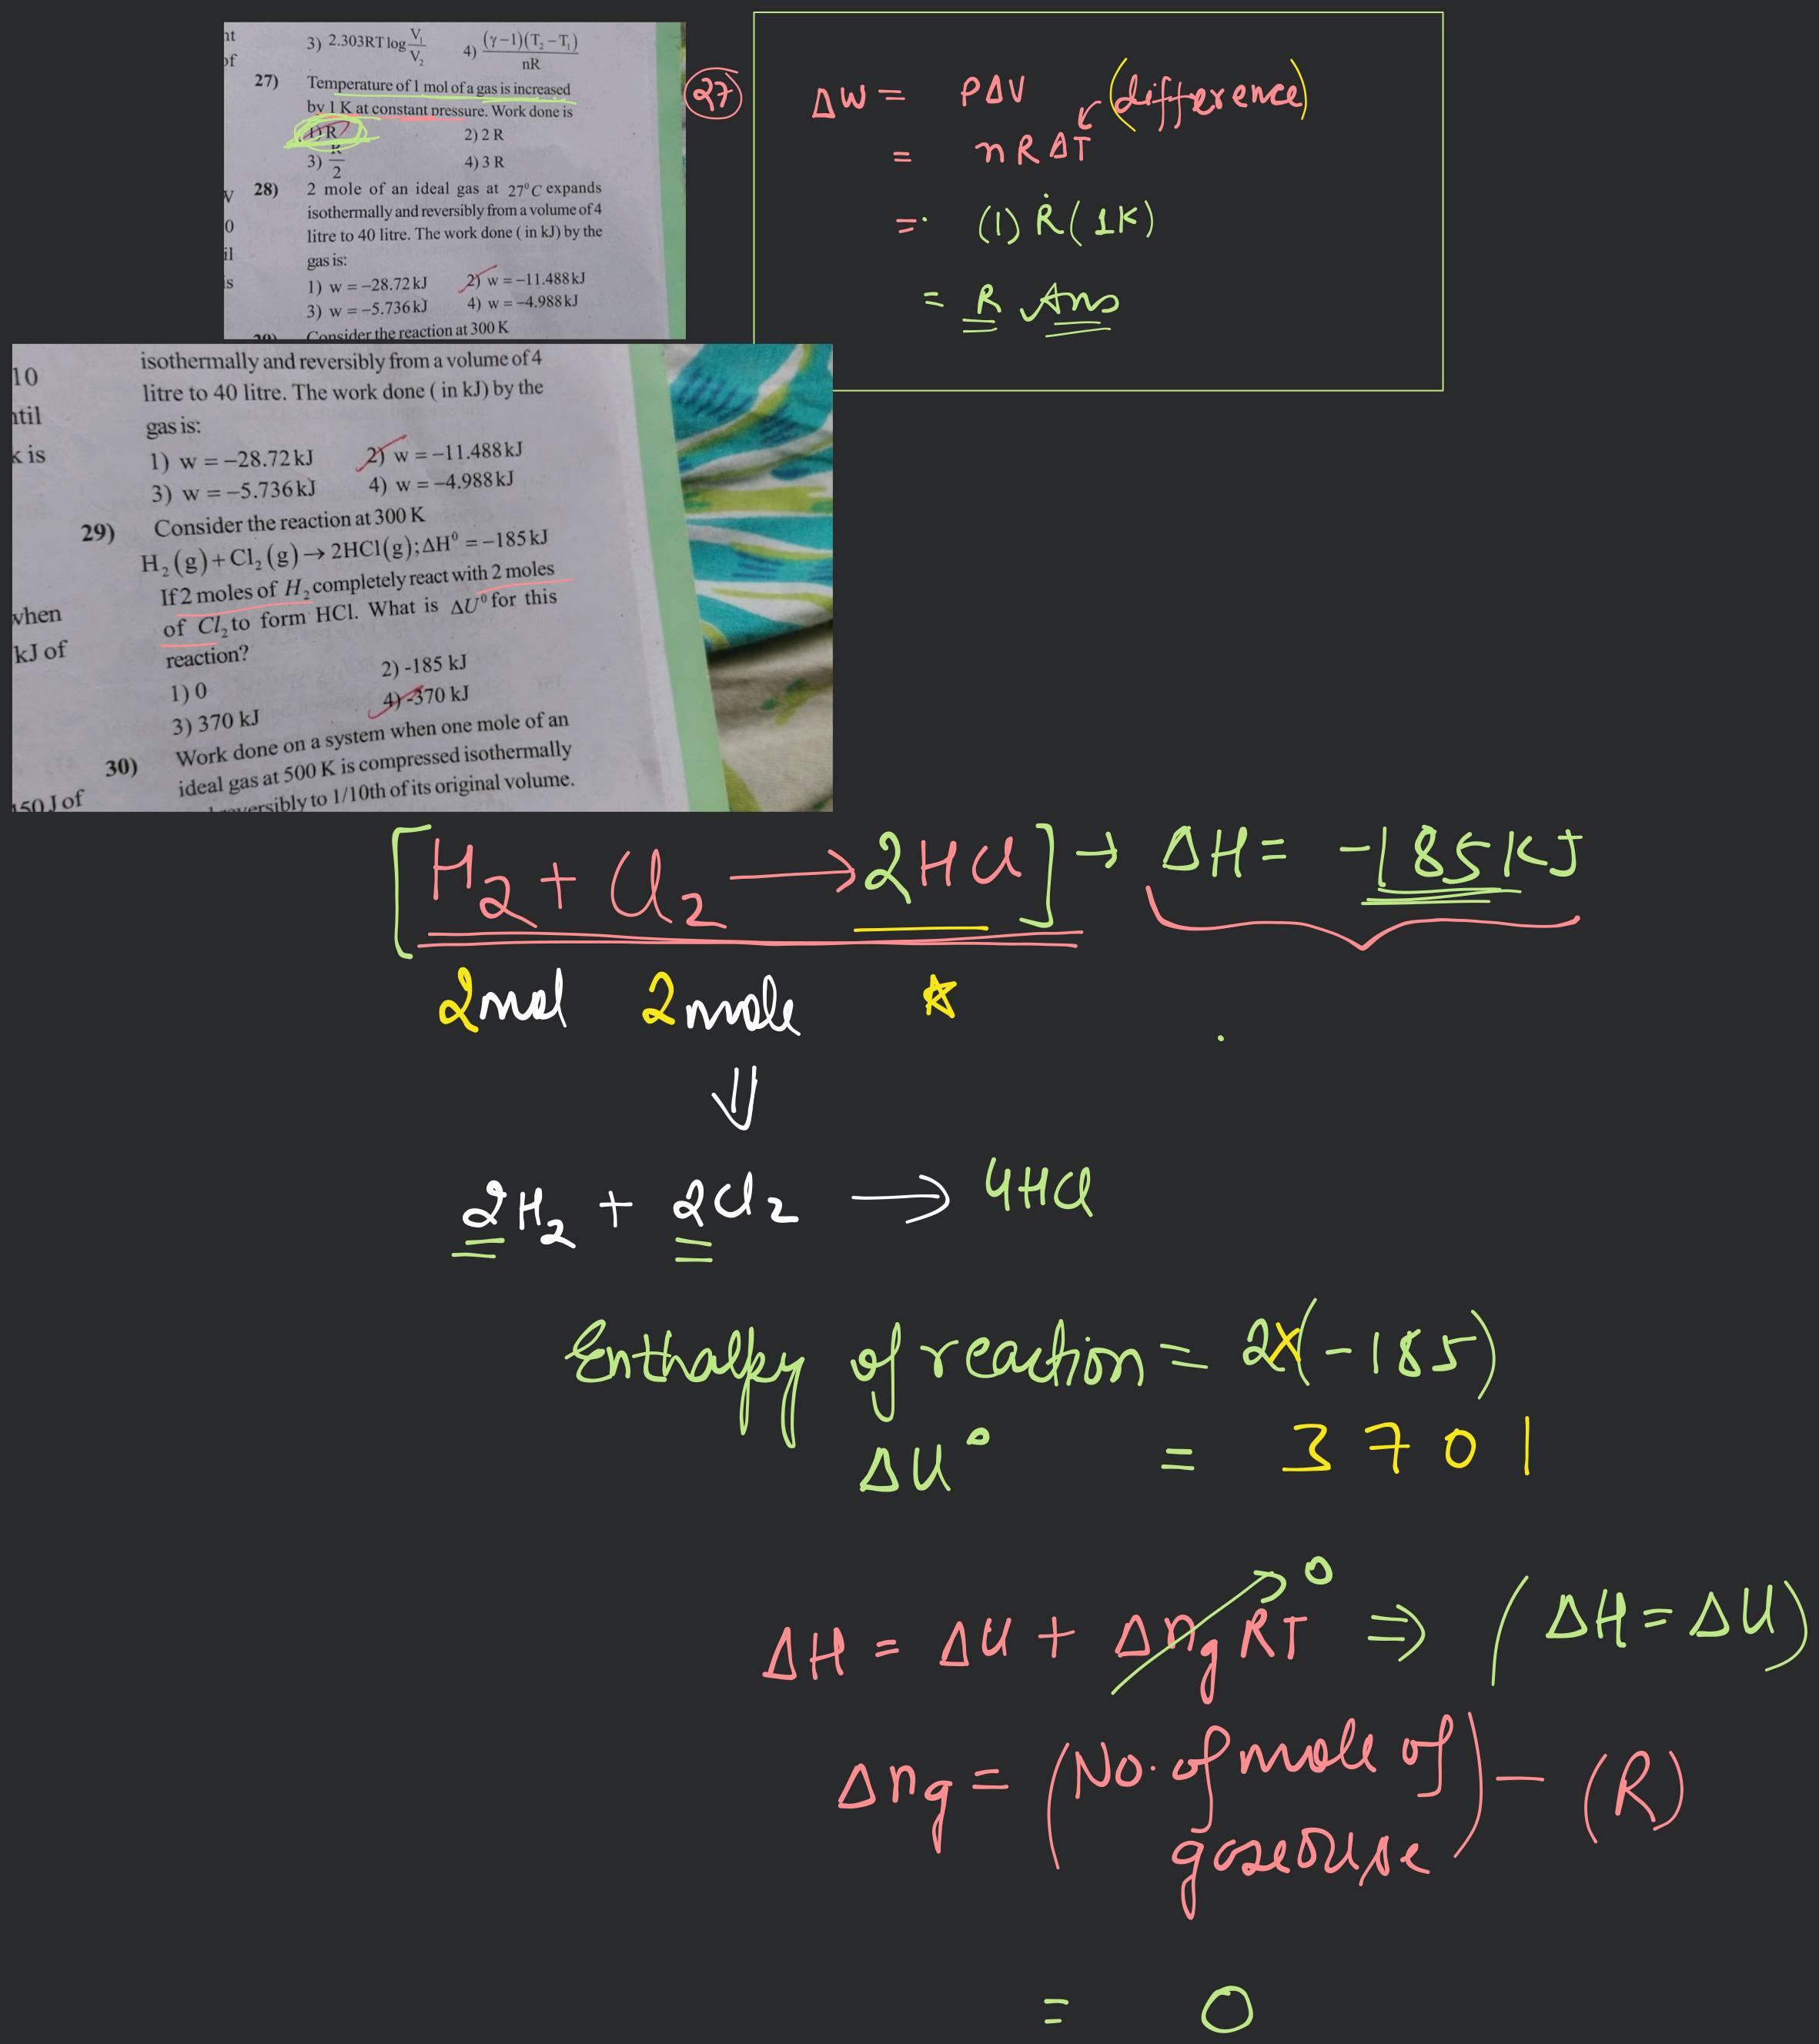 nt
of
3) 2.303RT log V₁/V₂ 4) (γ−1)(T₂−T₁)/nR
27) Temperature of 1 mol of a gas is increased
by 1 K at constant pressure. Work done is
1) R 2) 2 R
3) R/2 4) 3 R
V
0
il
is
28) 2 mole of an ideal gas at 27⁰C expands
isothermally and reversibly from a volume of 4
litre to 40 litre. The work done ( in kJ) by the
gas is:
1) w = −28.72 kJ 2) w = −11.488 kJ
3) w = −5.736 kJ 4) w = −4.988 kJ
29) Consider the reaction at 300 K
27
ΔW = PΔV (difference)
= nRΔT
= (1) R (1K)
= R Ans
10
ntil
k is
when
kJ of
150 J of
isothermally and reversibly from a volume of 4
litre to 40 litre. The work done ( in kJ) by the
gas is:
1) w = −28.72 kJ 2) w = −11.488 kJ
3) w = −5.736 kJ 4) w = −4.988 kJ
29) Consider the reaction at 300 K
H₂(g)+Cl₂(g)→2HCl(g);ΔH⁰ = −185 kJ
If 2 moles of H₂ completely react with 2 moles
of Cl₂ to form HCl. What is ΔU⁰ for this
reaction?
1) 0 2) -185 kJ
3) 370 kJ 4) -370 kJ
30) Work done on a system when one mole of an
ideal gas at 500 K is compressed isothermally
versibly to 1/10th of its original volume.
[H₂ + Cl₂ → 2HCl] → ΔH = −185 KJ
2mol 2mole ☆
⇓
2H₂ + 2Cl₂ → 4HCl
Enthalpy of reaction = 2×(−185)
ΔU° = 3701
ΔH = ΔU + Δng RT → 0 ⇒ (ΔH = ΔU)
Δng = (No. of mole of
gaseouse) − (R)
= 0